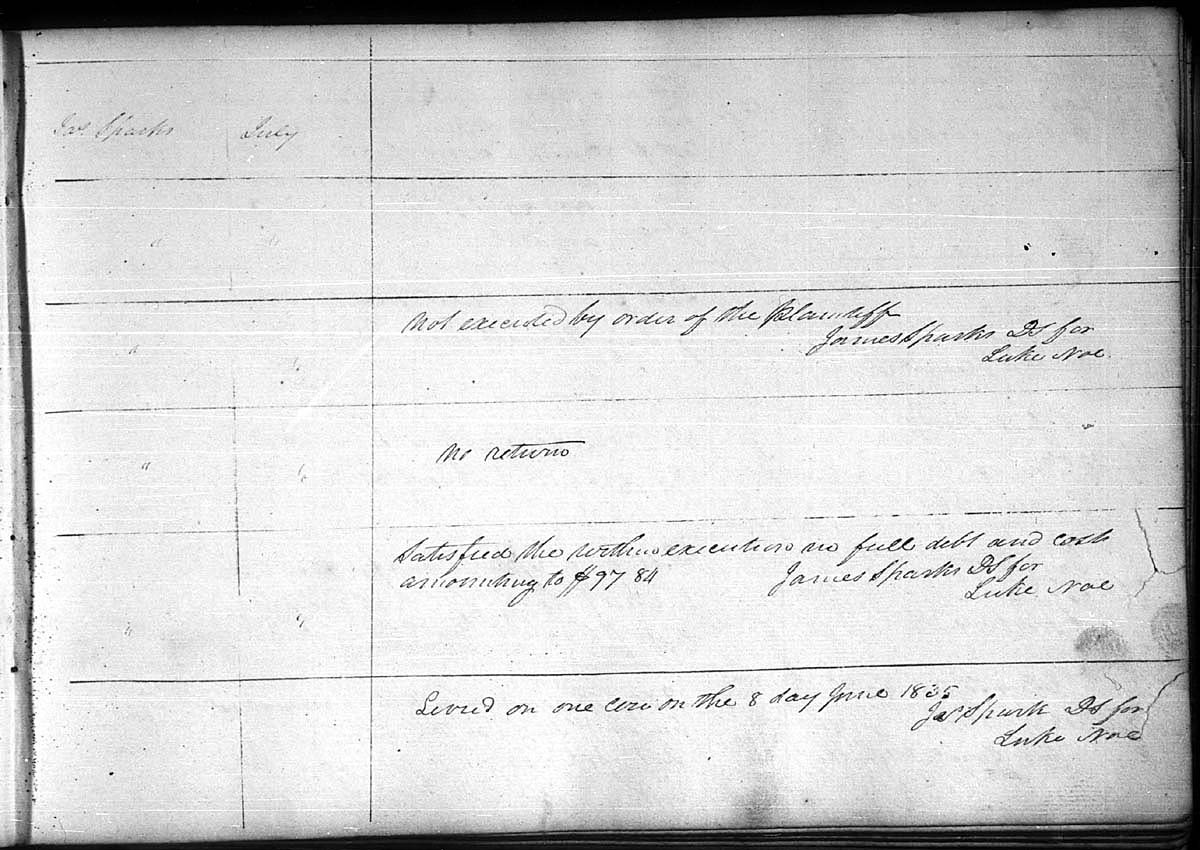 Jas. Sparks July
" "
Not executed by order of the Plaintiff
James Sparks DS for
Luke Noe
" "
No return
" "
Satisfied the within execution no full debt and costs
amounting to $97 84 James Sparks DS for
Luke Noe
" "
Levied on one cow on the 8 day June 1835
Jas Spark DS for
Luke Noe